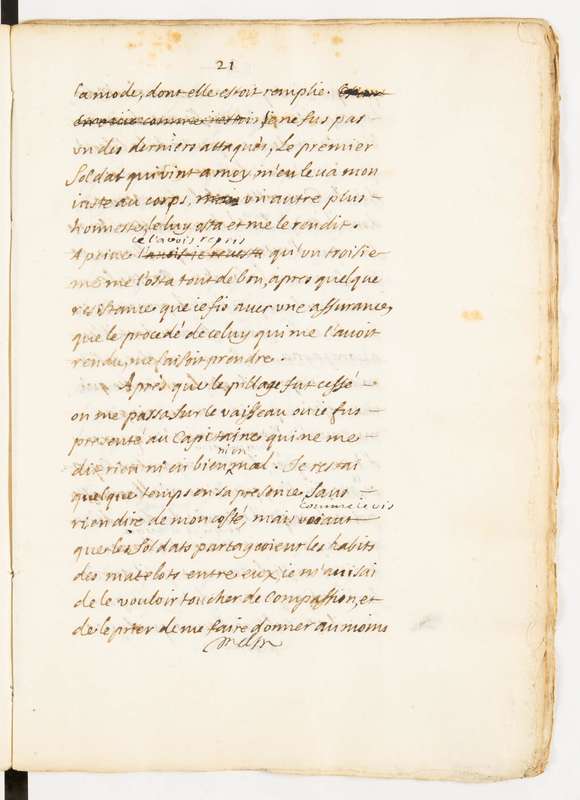 21
la mode, dont elle estoit remplie.
Je ne fus pas
un des derniers attaqués, Le premier
soldat qui vint a moy m'enleva mon
juste au corps, mais un autre plus
honneste le luy osta et me le rendit.
je l'avois repris
A peine qu'un troisie-
me me l'osta tout de bon, apres quelque
resistance que ie fis avec une assurance,
que le procedé de celuy qui me l'avoit
rendu, me faisoit prendre.
Après que le pillage fut cessé
on me passa sur le vaisseau ou ie fus
presenté au Capitaine qui ne me
ni en
dit rien ni en bien, mal. Je restai
quelque temps en sa presence sans
comme ie vis
rien dire de mon costé, mais voiant
que les soldats partageoient les habits
des matelots entre eux, ie m'avisai
de le vouloir toucher de compassion, et
de le prier de me faire donner au moins